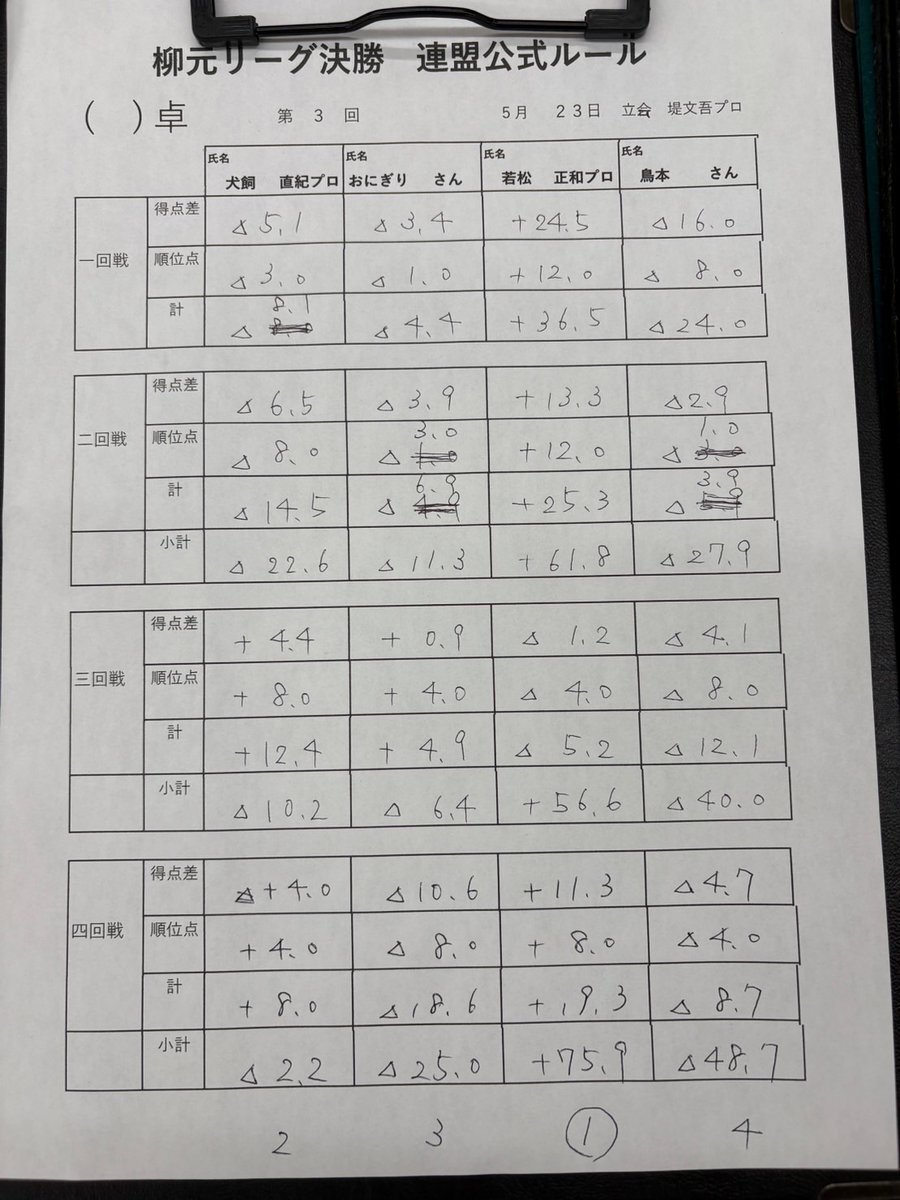 柳元リーグ決勝 連盟公式ルール
( ) 卓 第 3 回 5月 23日 立会 堤文吾プロ
氏名 氏名 氏名 氏名
犬飼 直紀プロ おにぎり さん 若松 正和プロ 鳥本 さん
一回戦
得点差 △5.1 △3.4 +24.5 △16.0
順位点 △3.0 △1.0 +12.0 △8.0
計 △8.1 △4.4 +36.5 △24.0
二回戦
得点差 △6.5 △3.9 +13.3 △2.9
順位点 △8.0 △3.0 +12.0 △1.0
計 △14.5 △6.9 +25.3 △3.9
小計 △22.6 △11.3 +61.8 △27.9
三回戦
得点差 +4.4 +0.9 △1.2 △4.1
順位点 +8.0 +4.0 △4.0 △8.0
計 +12.4 +4.9 △5.2 △12.1
小計 △10.2 △6.4 +56.6 △40.0
四回戦
得点差 +4.0 △10.6 +11.3 △4.7
順位点 +4.0 △8.0 +8.0 △4.0
計 +8.0 △18.6 +19.3 △8.7
小計 △2.2 △25.0 +75.9 △48.7
2 3 ① 4